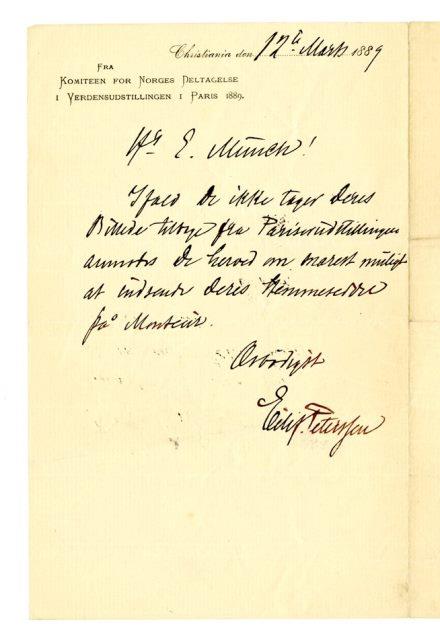 Christiania den 12te Marts 1889
Fra
Komiteen for Norges Deltagelse
i Verdensudstillingen i Paris 1889.
Hr E. Münch!
Ifald De ikke tager Deres
Billede tilbage fra Pariserudstillingen
anmodes De herved om snarest muligt
at indsende Deres Stemmeseddel
på Monteur.
Ærbødigst
Eilif Peterssen